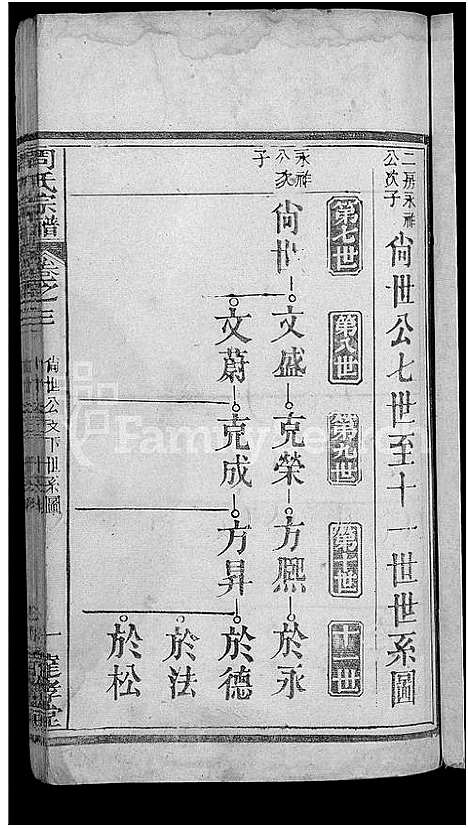 二房永祥公次子
尙世公七世至十一世世系圖
第七世
第八世
第九世
第十世
十一世
永祥公次子
尙世
文盛
克榮
方熙
於永
文蔚
克成
方昇
於德
於法
於松
周氏宗譜
卷之三
尙世公支下世系圖
一